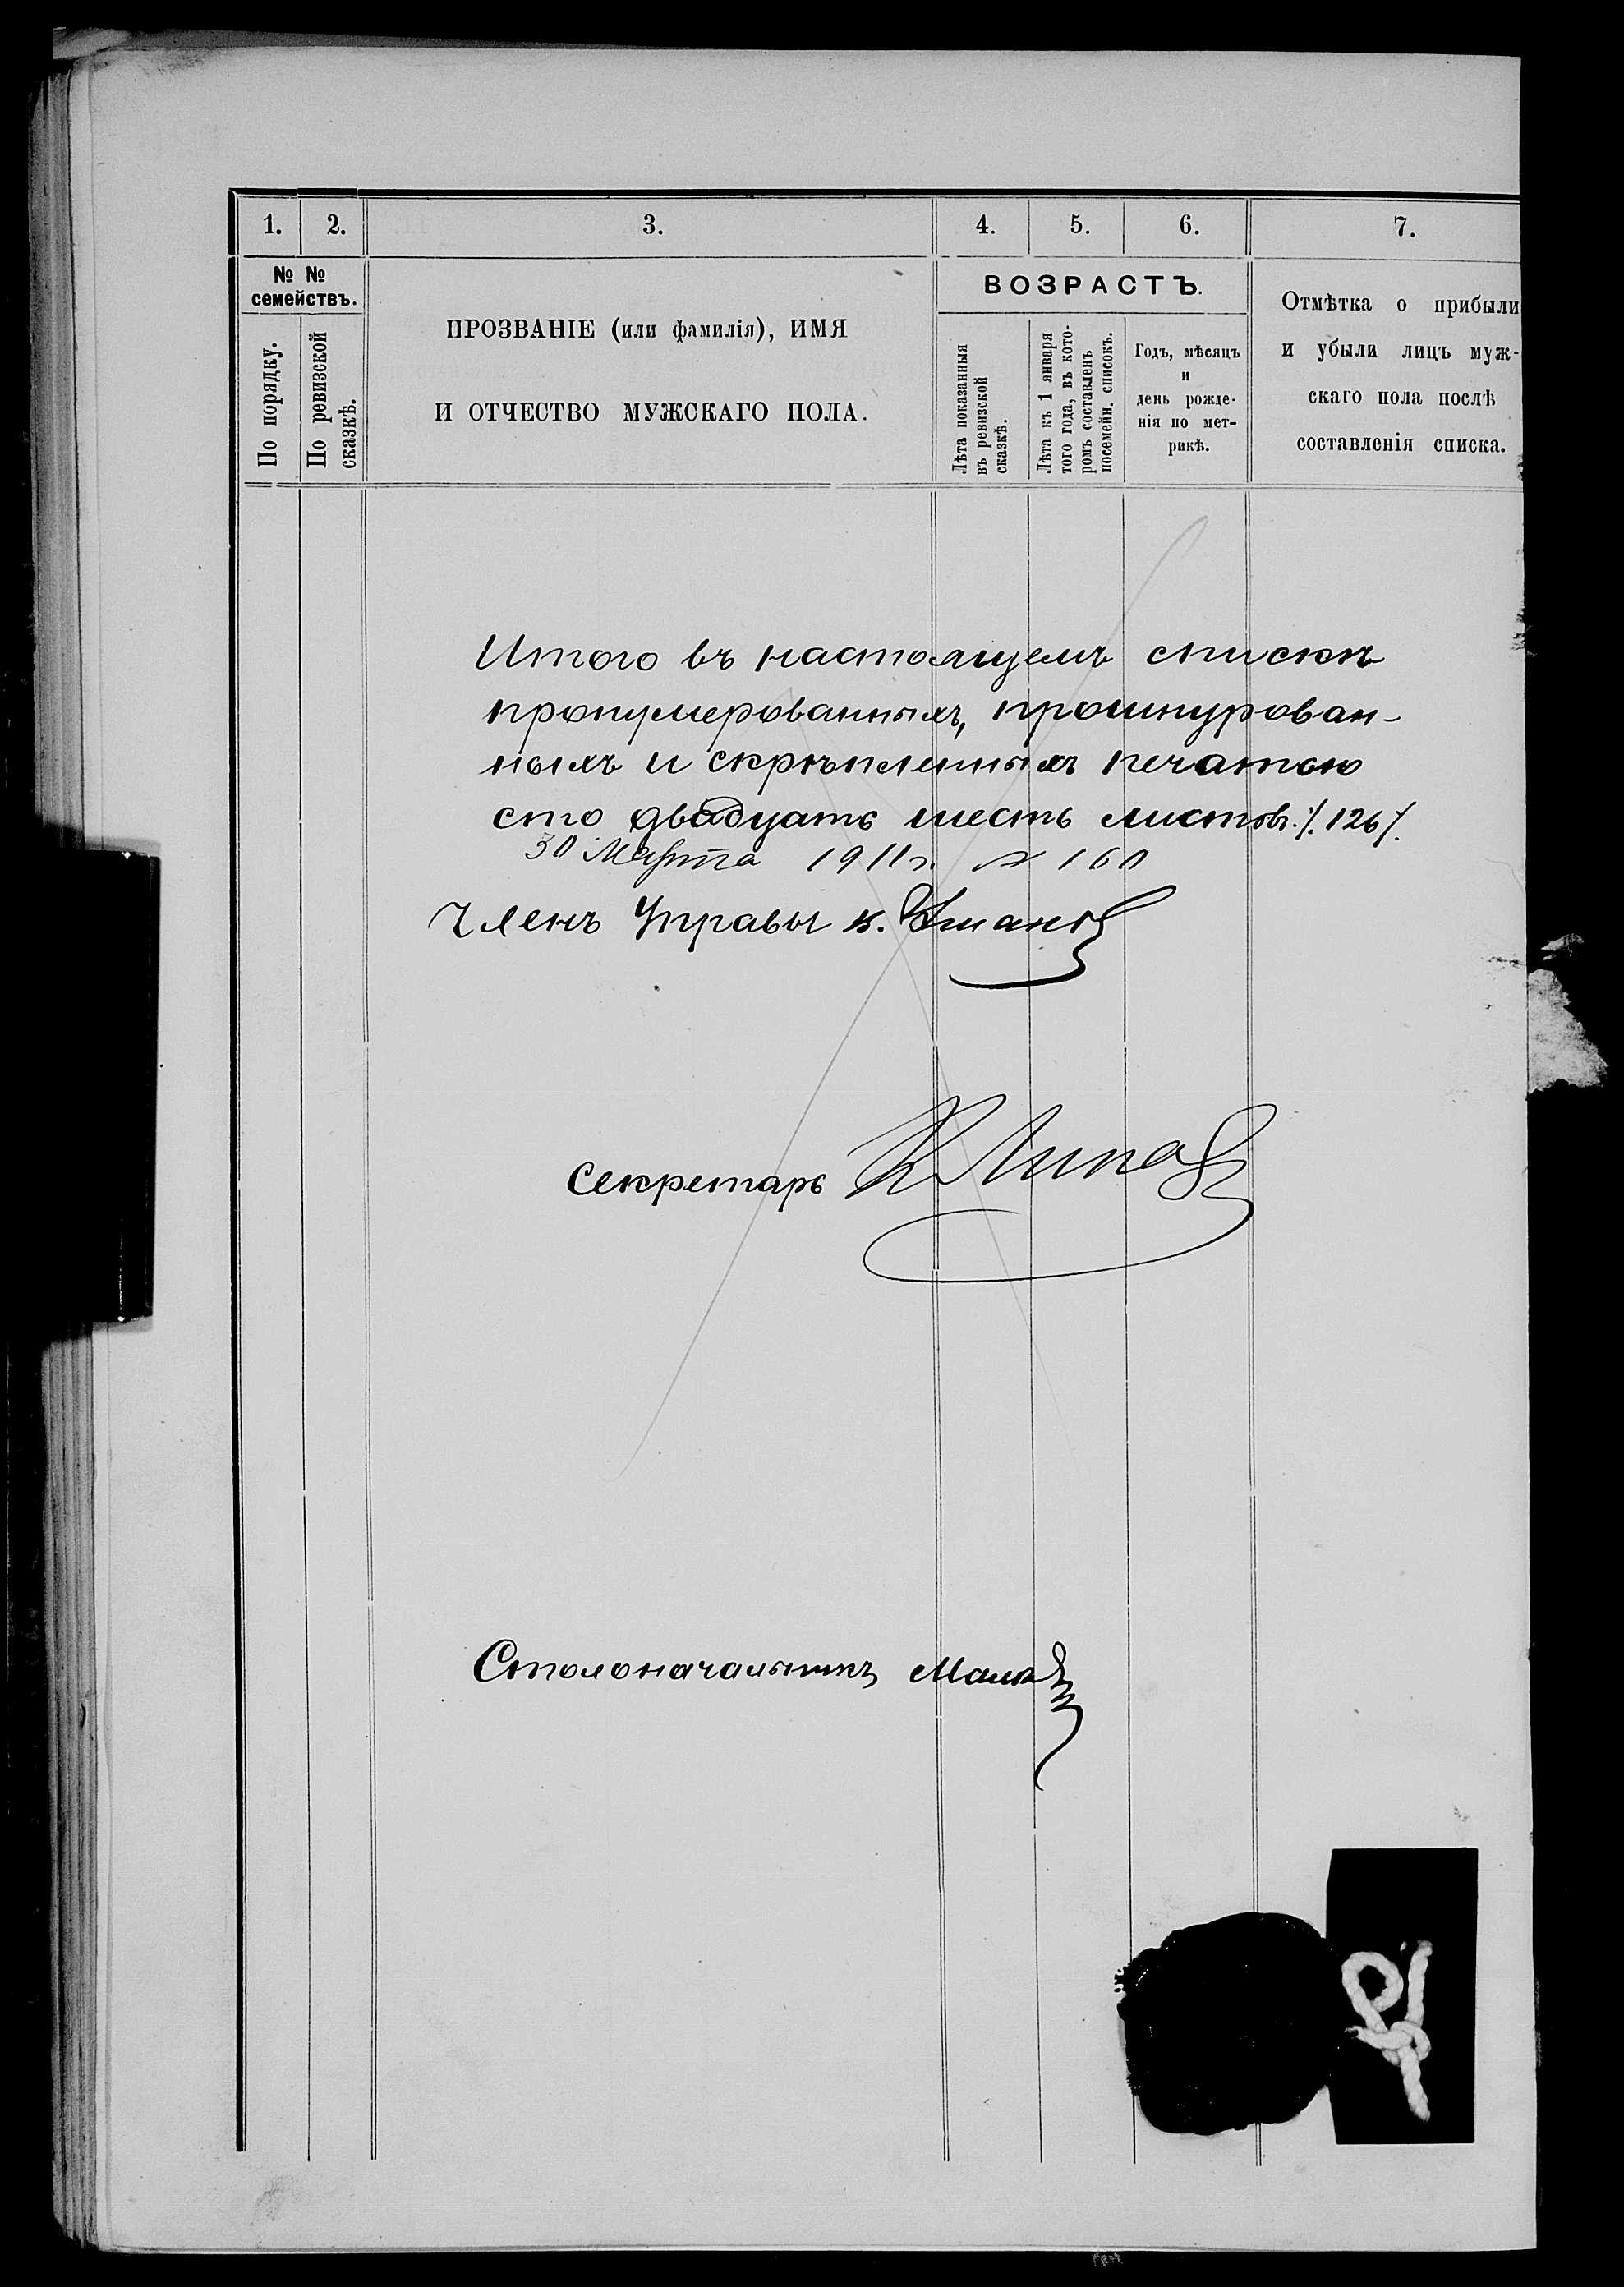 1. 2. 3. 4. 5. 6. 7.
№ №
семействъ.
По порядку.
По ревизской
сказкѣ.
ПРОЗВАНІЕ (или фамилія), ИМЯ
И ОТЧЕСТВО МУЖСКАГО ПОЛА.
ВОЗРАСТЪ.
Лѣта показанныя
въ ревизской
сказкѣ.
Лѣта къ 1 января
того года, въ кото-
ромъ составленъ
посемейн. списокъ.
Годъ, мѣсяцъ
и
день рожде-
нія по мет-
рикѣ.
Отмѣтка о прибыли
и убыли лицъ муж-
скаго пола послѣ
составленія списка.
Итого въ настоящемъ спискѣ
пронумерованныхъ, прошнурован-
ныхъ и скрѣпленныхъ печатью
сто двадцать шесть листовъ ./. 126 /.
30 Марта 1911 г. № 160
Членъ Управы
Секретарь
Столоначальникъ